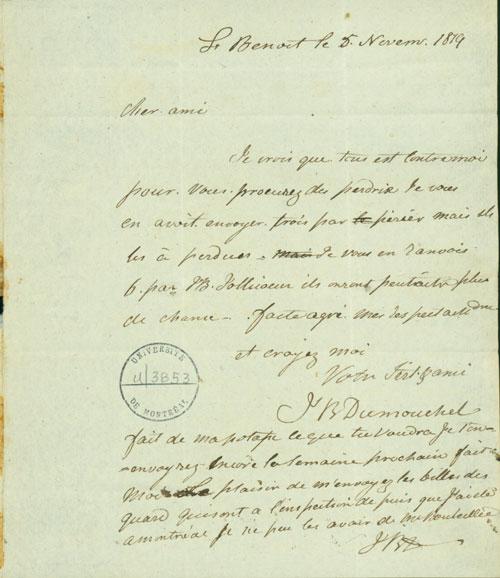 St Benoit le 5. Novem. 1819
Cher ami
Je crois que tous est contre moi
pour. vous. procurez des perdrix Je vous
en avoit envoyer trois par le perier mais il
les à perdues. mais Je vous en Renvois
6. par JB. Jollicoeur ils oront peutaitre plus
de chance
et croyez moi
Votre ami
JB Dumouchel
fait de ma potasse ce que tu voudra Je t'en
envoyrez encore la semaine prochain fait
Moi le plaisir de m'envoyez les billes des
quard qui sont à l'inspection de puis que J'ai été
a montréal Je ne peu les avoir de
JBD
UNIVERSITÉ
U/3853
DE MONTRÉAL